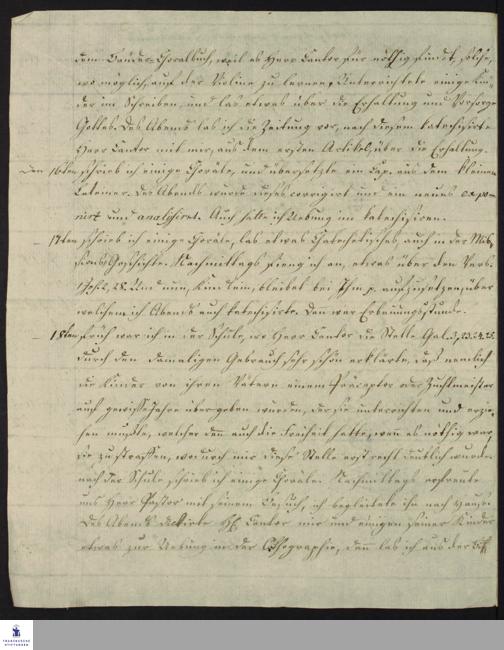 dem Brüder-Choralbuch, weil es Herr Cantor für nöthig findet, solche,
wo möglich, auf der Violine zu lernen, Unterrichtete einige Kin-
der im Schreiben, und las etwas über die Erhaltung und Vorsorge
Gottes. Des Abends las ich die Zeitung vor, nach diesem katechisirte
Herr Cantor mit mir, aus dem ersten Artikel, über die Erhaltung.
Den 16ten schrieb ich einige Choräle, und übersetzte ein Cap. aus dem kleinen
Lateiner. Des Abends wurde dieses corrigirt und ein neues expo-
nirt und analysiret. Auch hatte ich Uebung im katechisiren.
– 17ten schrieb ich einige Choräle, las etwas Katechetisches, auch in der Mis-
sions Geschichte. Nachmittags fieng ich an, etwas über den Vers.
1 Joh. 2, 28. Und nun, Kindlein, bleibet bei Ihm p. aufzusetzen, über
welchen ich Abends auch katechisirte. Dann war Erbauungsstunde.
– 18ten früh war ich in der Schule, wo Herr Cantor die Stelle Gal. 3, 23. 24. 25.
durch den damaligen Gebrauch sehr schön erklärte, daß nemlich
die Kinder von ihren Vätern einem Präceptor oder Zuchtmeister
auf gewisse Jahre übergeben wurden, der sie unterrichten und erzie-
hen mußte, welcher denn auch die Freiheit hatte, wenn es nöthig war,
sie zu straffen, wodurch mir diese Stelle erst recht deutlich wurde.
nach der Schule schrieb ich einige Choräle. Nachmittags erfreute
uns Herr Pastor mit seinem Besuch, ich begleitete ihn nach Hause.
Des Abends dictirte H. Cantor mir und einigen seiner Kinder
etwas zur Uebung in der Orthographie, dann las ich aus der
FRANCKESCHE
STIFTUNGEN